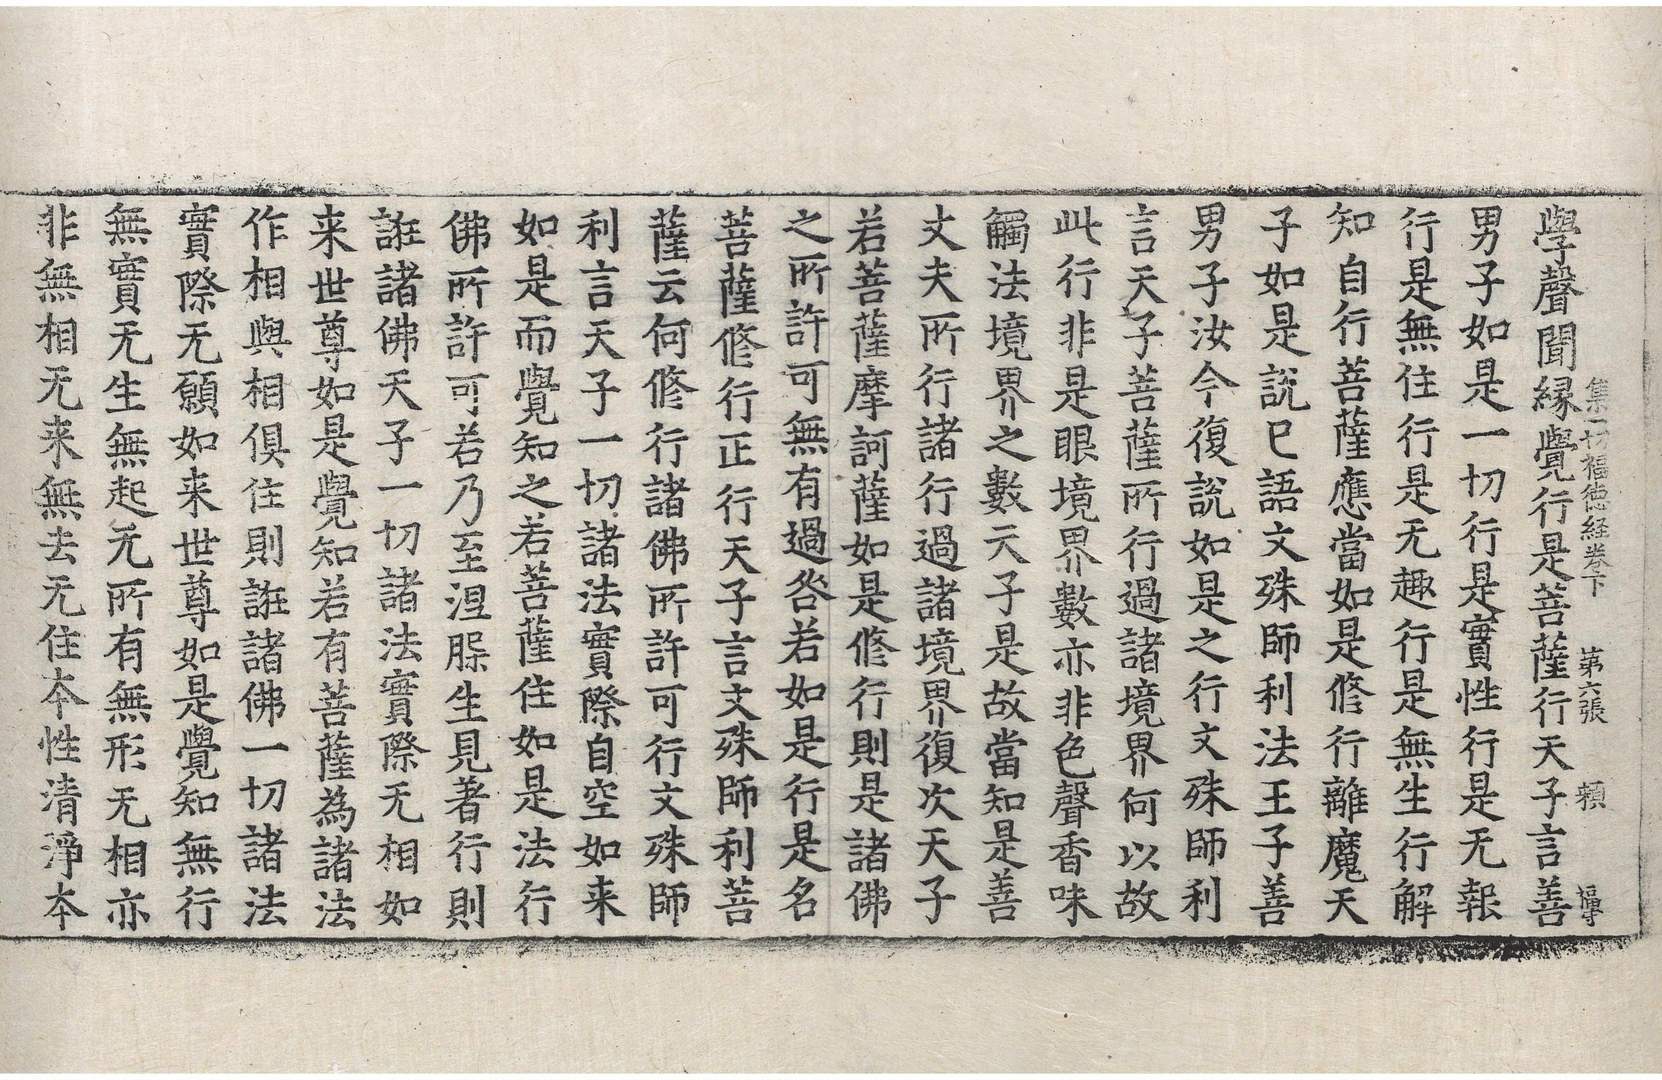 集一切福德経卷下 第六張 頼
學聲聞縁覺行是菩薩行天子言善
男子如是一切行是實性行是无報
行是無住行是无趣行是無生行解
知自行菩薩應當如是修行離魔天
子如是說已語文殊師利法王子善
男子汝今復說如是之行文殊師利
言天子菩薩所行過諸境界何以故
此行非是眼境界數亦非色聲香味
觸法境界之數天子是故當知是善
丈夫所行諸行過諸境界復次天子
若菩薩摩訶薩如是修行則是諸佛
之所許可無有過咎若如是行是名
菩薩修行正行天子言文殊師利菩
薩云何修行諸佛所許可行文殊師
利言天子一切諸法實際自空如来
如是而覺知之若菩薩住如是法行
佛所許可若乃至涅槃生見著行則
誑諸佛天子一切諸法實際无相如
来世尊如是覺知若有菩薩為諸法
作相與相俱住則誑諸佛一切諸法
實際无願如来世尊如是覺知無行
無實无生無起无所有無形无相亦
非無相无来無去无住本性清淨本